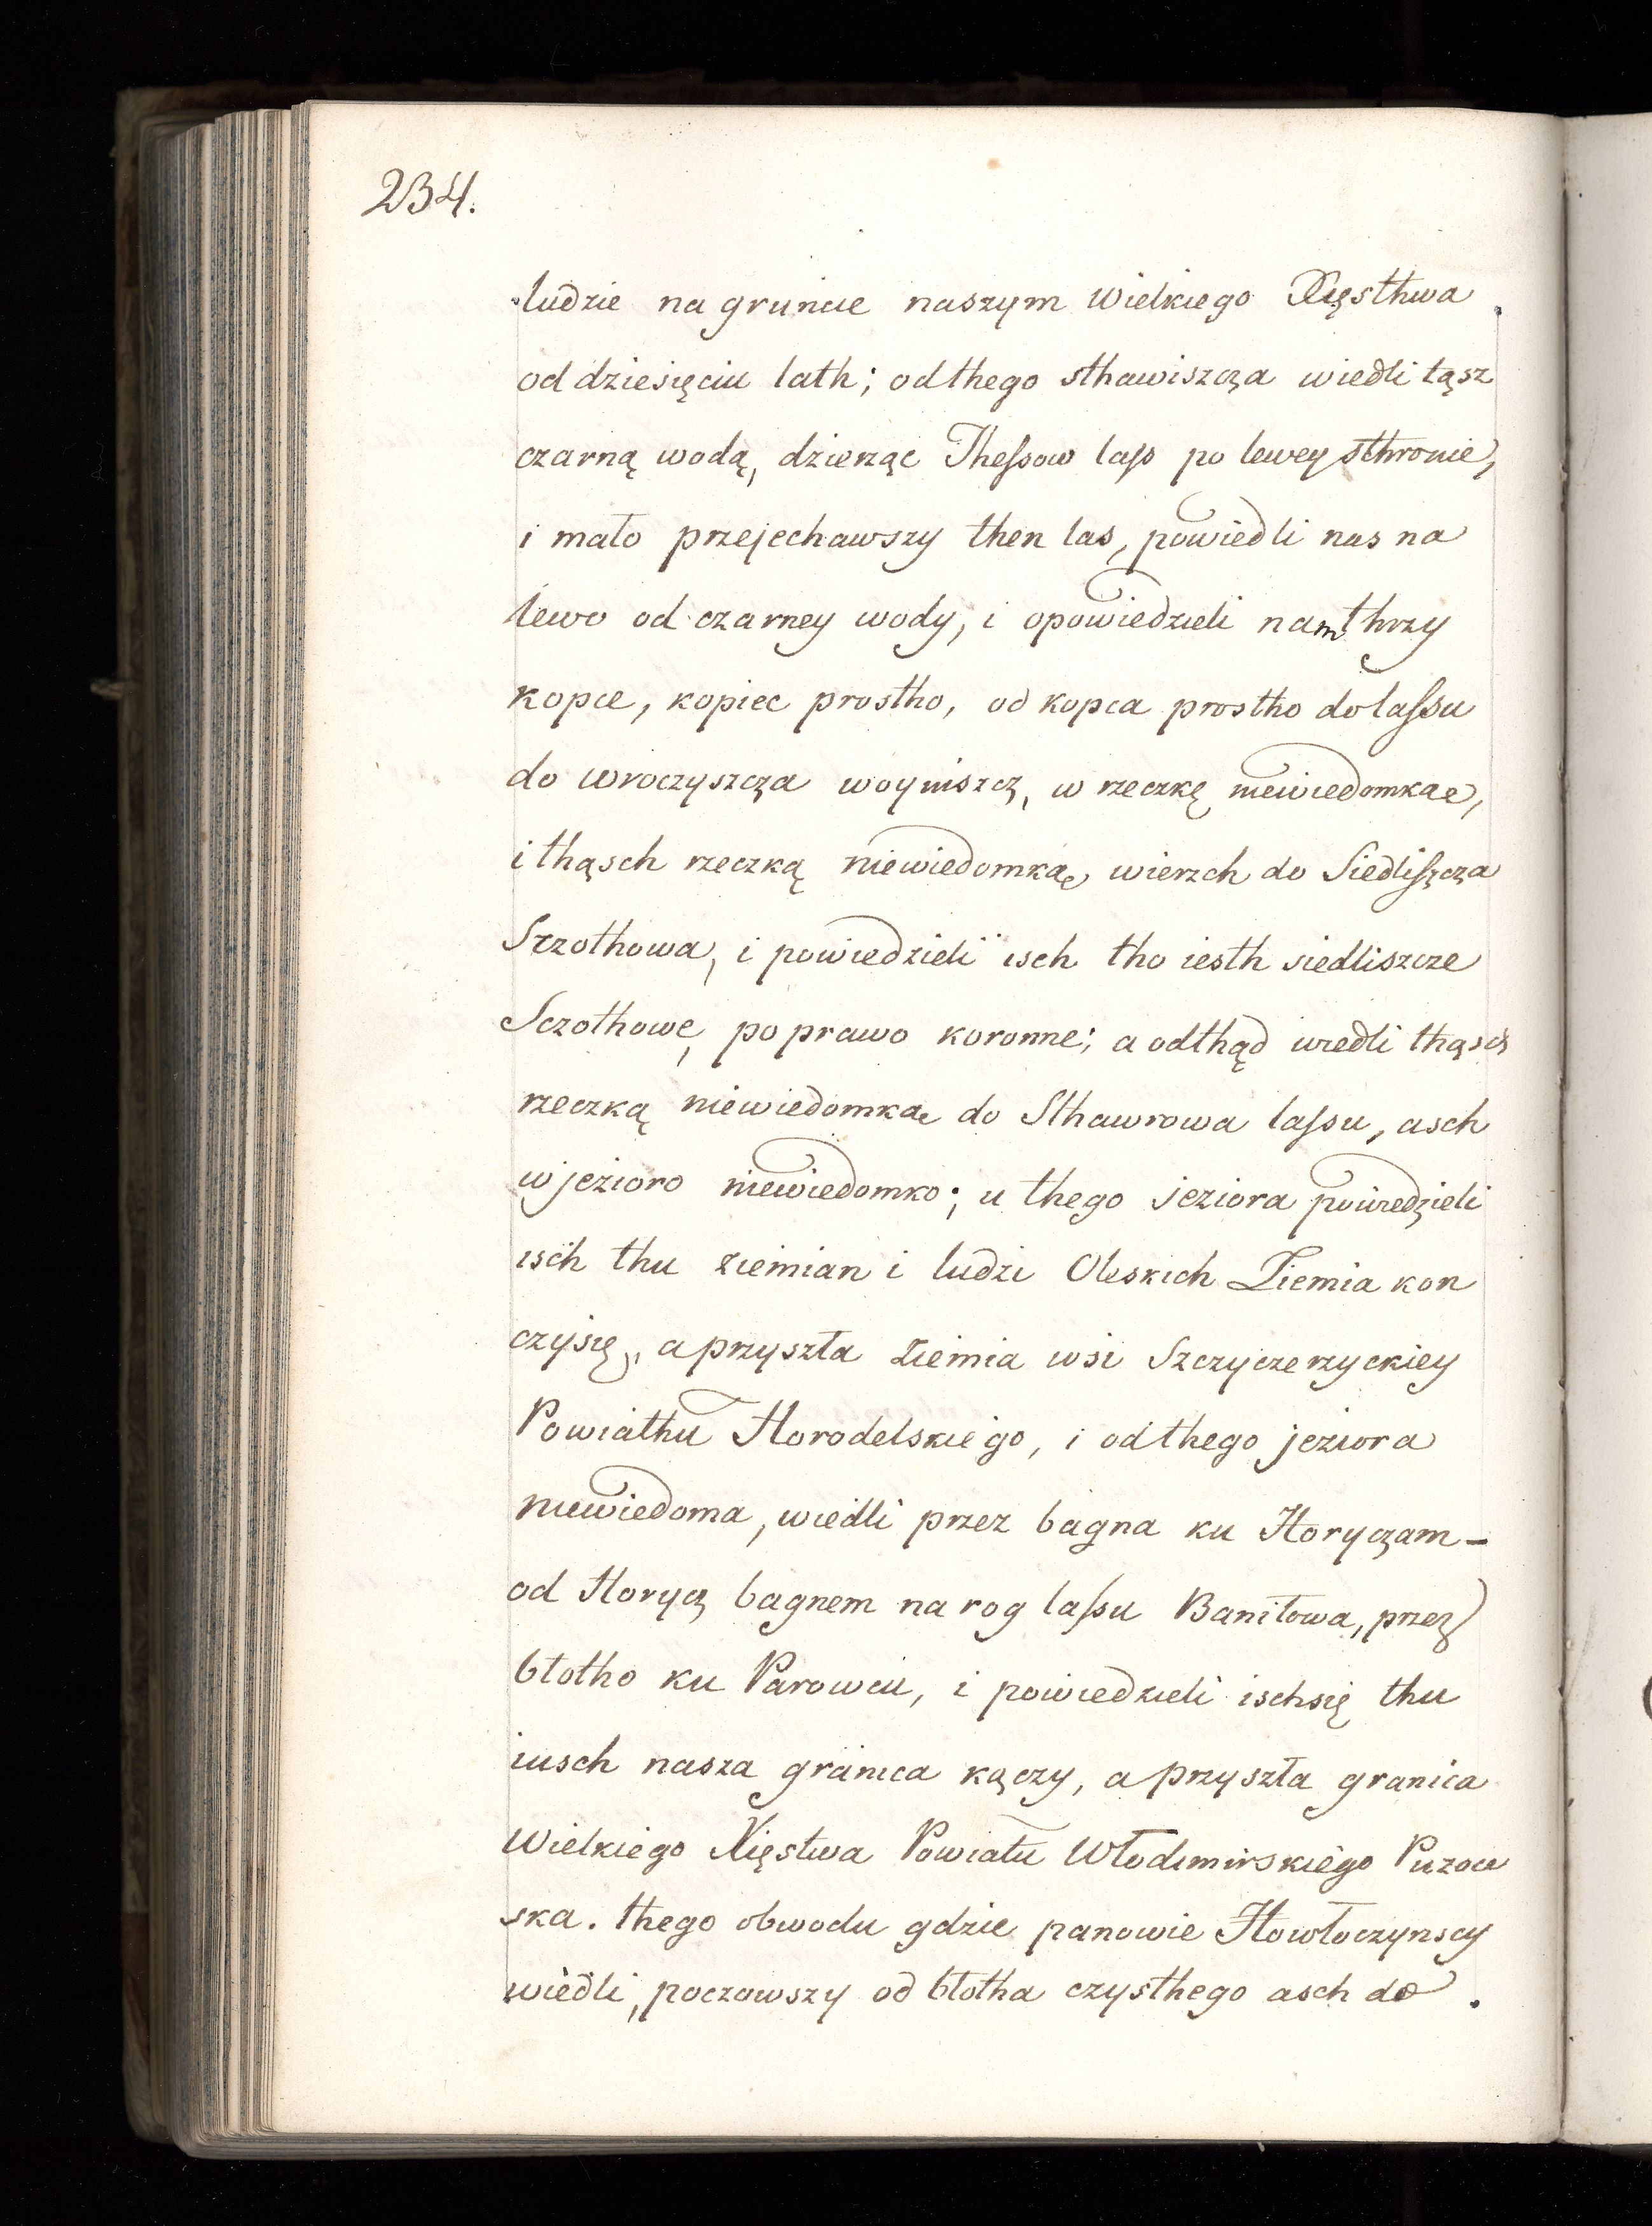 234.
ludzie na gruncie naszym Wielkiego Xięsthwa
od dziesięciu lath; od thego sthawiszcza wiedli tąsz
czarną wodą, dzierząc Thessow lass po lewey sthronie,
i mało przejechawszy then las, powiedli nas na
lewo od czarney wody, i opowiedzieli nam thrzy
kopce, kopiec prostho, od kopca prostho do lassu
do wroczyszcza woyniszcz, w rzeczkę niewiedomkae,
i thąsch rzeczką niewiedomkae wierzch do Siedliszcza
Szzothowa, i powiedzieli isch tho iesth siedliszcze
Sczothowe, po prawo koronne; a odthąd wiedli thąsch
rzeczką niewiedomkae do Sthawrowa lassu, asch
w jezioro niewiedomko; u thego jeziora powiedzieli
isch thu ziemian i ludzi Oleskich Ziemia kon
czy się, a przyszła ziemia wsi Szczyczerzyckiey
Powiathu Horodelskiego, i od thego jeziora
niewiedoma, wiedli przez bagna ku Horyczam –
od Horycz bagnem na rog lassu Baniłowa, przez
błotho ku Parowcu, i powiedzieli isch się thu
iusch nasza granica kączy, a przyszła granica
Wielkiego Xięstwa Powiatu Włodimirskiego Puzow
ska. thego obwodu gdzie panowie Howłoczynscy
wiedli, poczowszy od błotha czysthego asch do